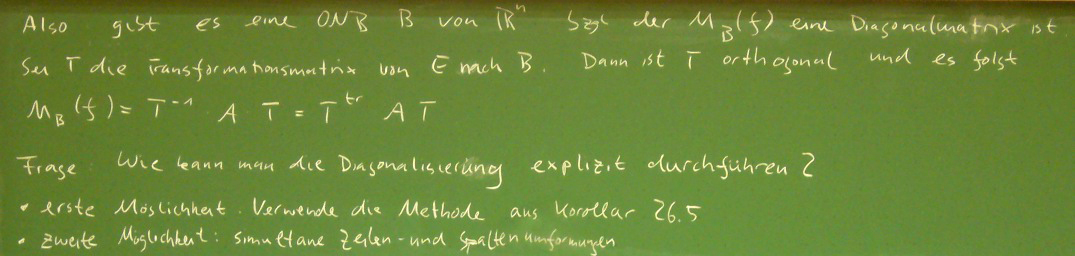 Also gibt es eine ONB B von ℝⁿ bzgl der M_B(f) eine Diagonalmatrix ist.
Sei T die Transformationsmatrix von E nach B. Dann ist T orthogonal und es folgt
M_B(f) = T⁻¹ A T = T^tr A T
Frage: Wie kann man die Diagonalisierung explizit durchführen?
• erste Möglichkeit. Verwende die Methode aus Korollar 26.5
• zweite Möglichkeit: simultane Zeilen- und Spaltenumformungen